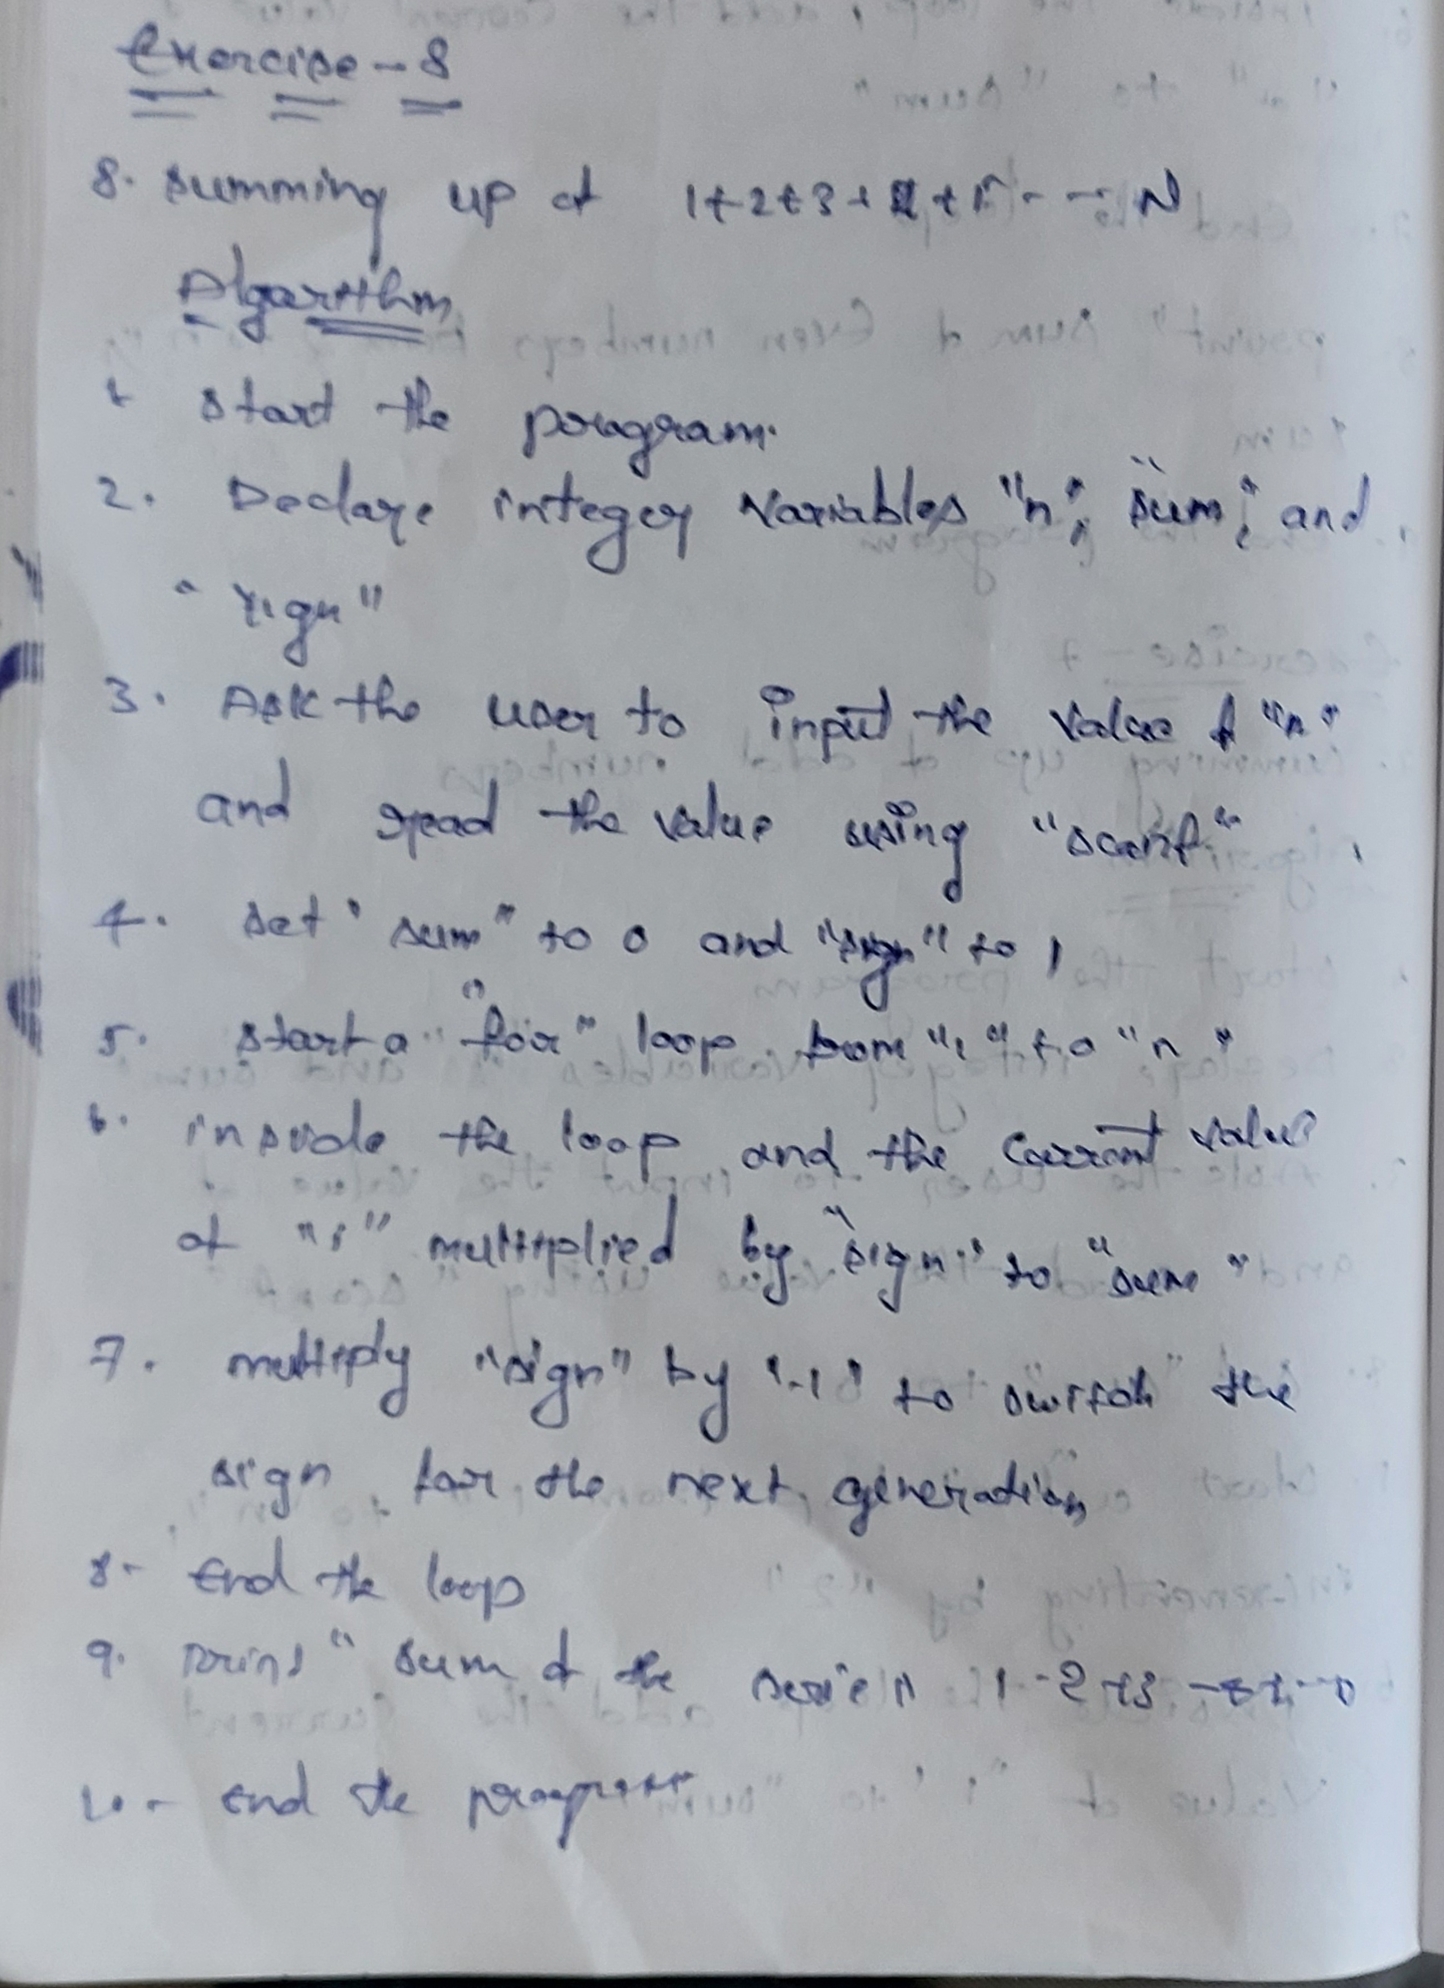 Exercise - 8
8. Summing up of 1+2+3+4+5 - - - N
Algorithm
1. Start the program.
2. Declare integer variables "n", "sum", and
"sign"
3. Ask the user to input the value of "n"
and read the value using "scanf".
4. Set "sum" to 0 and "sign" to 1
5. Start a "for" loop from "1" to "n"
6. inside the loop and the current value
of "i" multiplied by "sign" to "sum"
7. multiply "sign" by "-1" to switch the
sign for the next generation
8- End the loop
9. Print "sum of the series 1-2+3
10- End the program